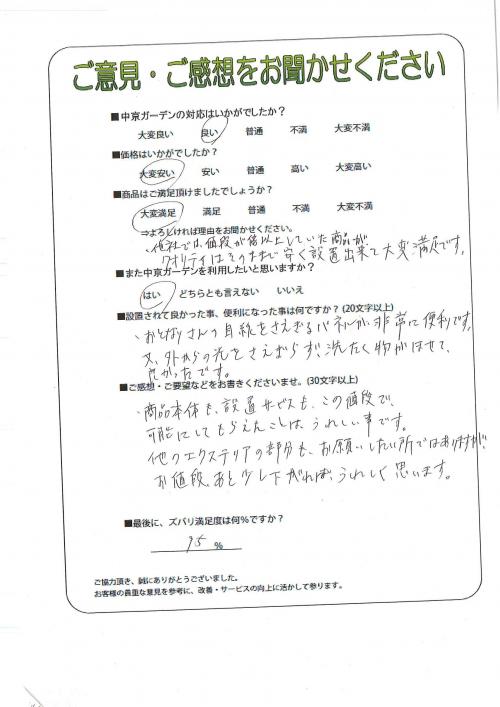 ご意見・ご感想をお聞かせください
■中京ガーデンの対応はいかがでしたか？
大変良い 良い 普通 不満 大変不満
■価格はいかがでしたか？
大変安い 安い 普通 高い 大変高い
■商品はご満足頂けましたでしょうか？
大変満足 満足 普通 不満 大変不満
⇒よろしければ理由をお聞かせください。
・他社では、値段が倍以上していた商品が、
クオリティはそのままで安く設置出来て大変満足です。
■また中京ガーデンを利用したいと思いますか？
はい どちらとも言えない いいえ
■設置されて良かった事、便利になった事は何ですか？(20文字以上)
・おとなりさんの目線をさえぎるパネルが、非常に便利です。
又、外からの光をさえぎらず、洗たく物がほせて、
良かったです。
■ご感想・ご要望などをお書きくださいませ。(30文字以上)
・商品本体も、設置サービスも、この値段で、
可能にしてもらえたことは、うれしい事です。
他のエクステリアの部分も、お願いしたい所ではありますが、
お値段、あと少し下がれば、うれしく思います。
■最後に、ズバリ満足度は何％ですか？
95 ％
ご協力頂き、誠にありがとうございました。
お客様の貴重な意見を参考に、改善・サービスの向上に活かして参ります。